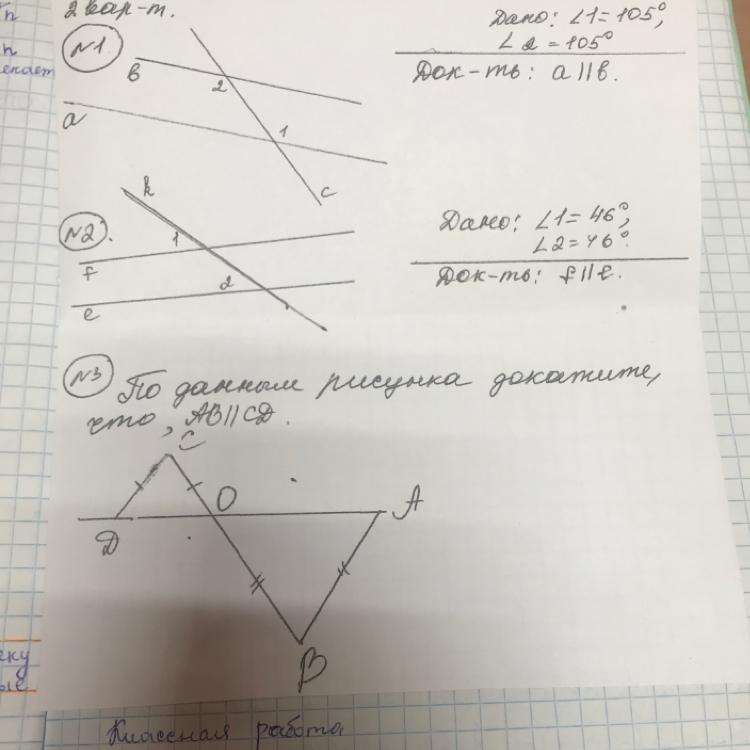 2 вар-т.
№1
Дано: ∠1=105°,
∠2=105°
Док-ть: a∥b.
b
2
a
1
c
№2.
k
1
f
2
e
Дано: ∠1=46°,
∠2=46°.
Док-ть: f∥e.
№3
По данным рисунка докажите,
что, AB∥CD.
C
O
A
D
B
Классная работа